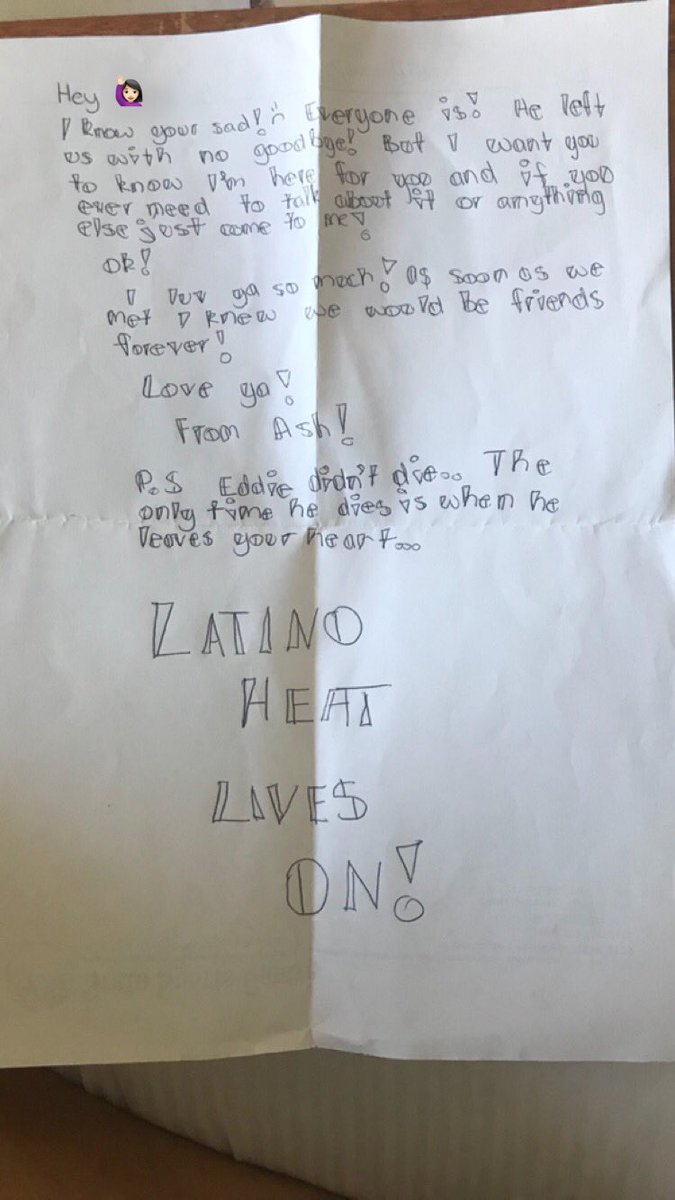 Hey 🙋🏻‍♀️
I know your sad! Everyone is! He left
us with no goodbye! But I want you
to know I'm here for you and if you
ever need to talk about it or anything
else just come to me!
Ok!
I luv ya so much! As soon as we
met I knew we would be friends
forever!
Love ya!
From Ash!
P.S Eddie didn't die... The
only time he dies is when he
leaves your heart...
LATINO
HEAT
LIVES
ON!